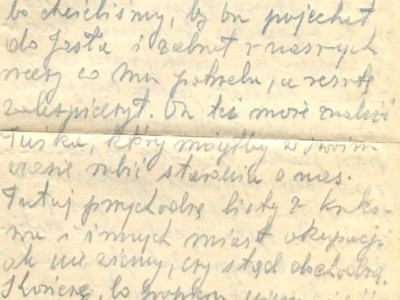 bo chcieliśmy, by on pojechał
do Jasła i zabrał z naszych
rzeczy co mu potrzeba, a resztę
zabezpieczył. On też może znaleźć
Tuśka, który mógłby w swoim
czasie robić starania o nas.
Tutaj przychodzą listy z Krako-
wa i innych miast okupacji
ale nie wiemy, czy stąd dochodzą.
Kończę, bo